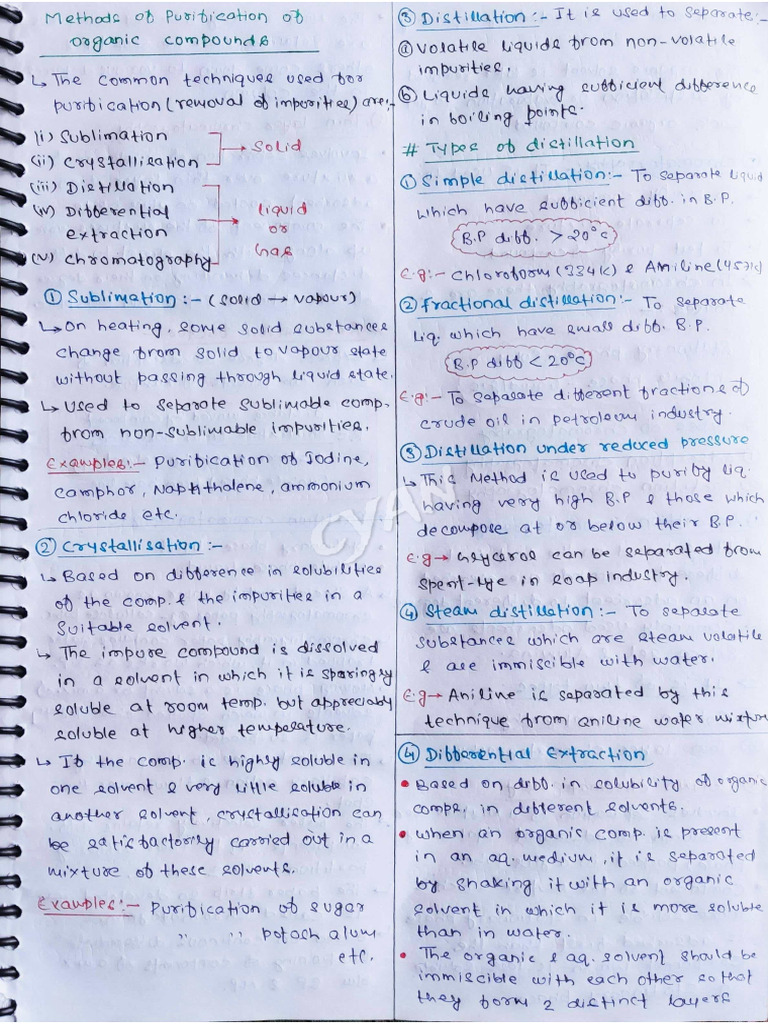 Methods of Purification of
organic compounds
↳ The common techniques used for
purification (removal of impurities) are:-
(i) Sublimation
(ii) Crystallisation
→ Solid
(iii) Distillation
(iv) Differential
extraction
(v) Chromatography
→ liquid
or
Gas
① Sublimation :- (Solid → vapour)
↳ On heating, some solid substances
change from solid to vapour state
without passing through liquid state.
↳ Used to separate sublimable comp.
from non-sublimable impurities.
Examples:- Purification of Iodine,
camphor, Naphtholene, ammonium
chloride etc.
② Crystallisation :-
↳ Based on difference in solubilities
of the comp. & the impurities in a
suitable solvent.
↳ The impure compound is dissolved
in a solvent in which it is sparingly
soluble at room temp. but appreciably
soluble at higher temperature.
↳ If the comp. is highly soluble in
one solvent & very little soluble in
another solvent, crystallisation can
be satisfactorily carried out in a
mixture of these solvents.
Examples:- Purification of sugar
" " potash alum
etc.
③ Distillation :- It is used to separate:-
ⓐ Volatile liquids from non-volatile
impurities.
ⓑ Liquids having sufficient difference
in boiling points.
# Types of distillation
① Simple distillation:- To separate liquid
which have sufficient diff. in B.P.
B.P diff. > 20°C
E.g:- Chloroform (334K) & Aniline (457K)
② Fractional distillation:- To separate
liq. which have small diff. B.P.
B.P diff < 20°C
E.g:- To separate different fractions of
crude oil in petroleum industry.
③ Distillation under reduced pressure
↳ This Method is used to purify liq.
having very high B.P & those which
decompose at or below their B.P.
E.g → Glycerol can be separated from
spent-lye in soap industry.
④ Steam distillation :- To separate
substances which are steam volatile
& are immiscible with water.
E.g → Aniline is separated by this
technique from aniline water mixture
④ Differential Extraction
• Based on diff. in solubility of organic
comps. in different solvents.
• When an organic comp. is present
in an aq. medium, it is separated
by shaking it with an organic
solvent in which it is more soluble
than in water.
• The organic & aq. solvent should be
immiscible with each other so that
they form 2 distinct layers
CYAN